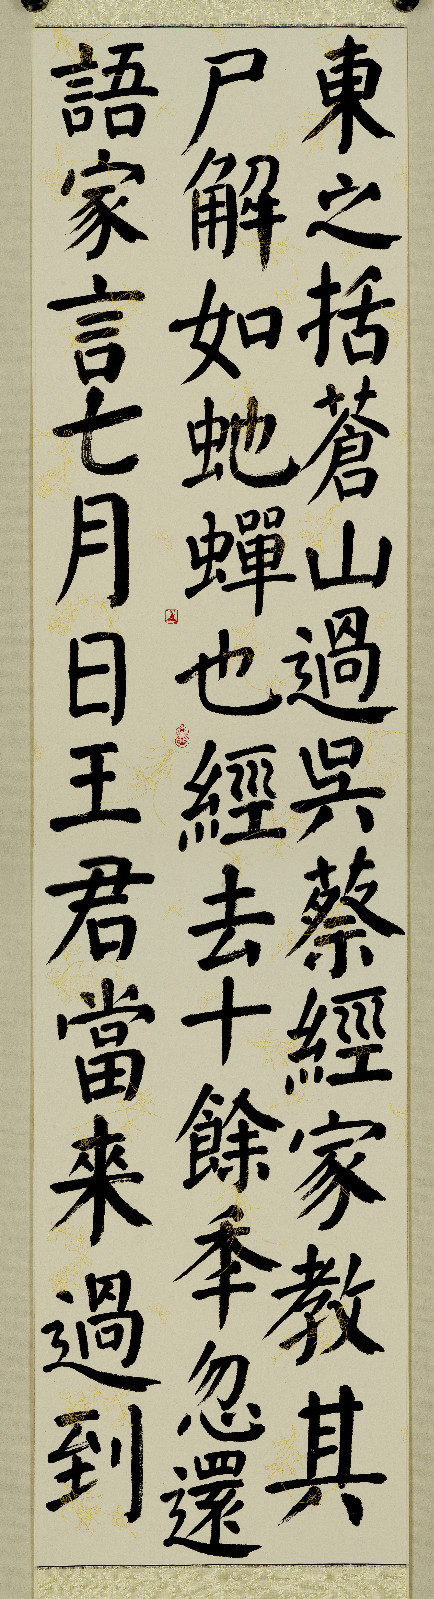 東之括蒼山過吳蔡經家教其
尸解如虵蟬也經去十餘秊忽還
語家言七月日王君當来過到